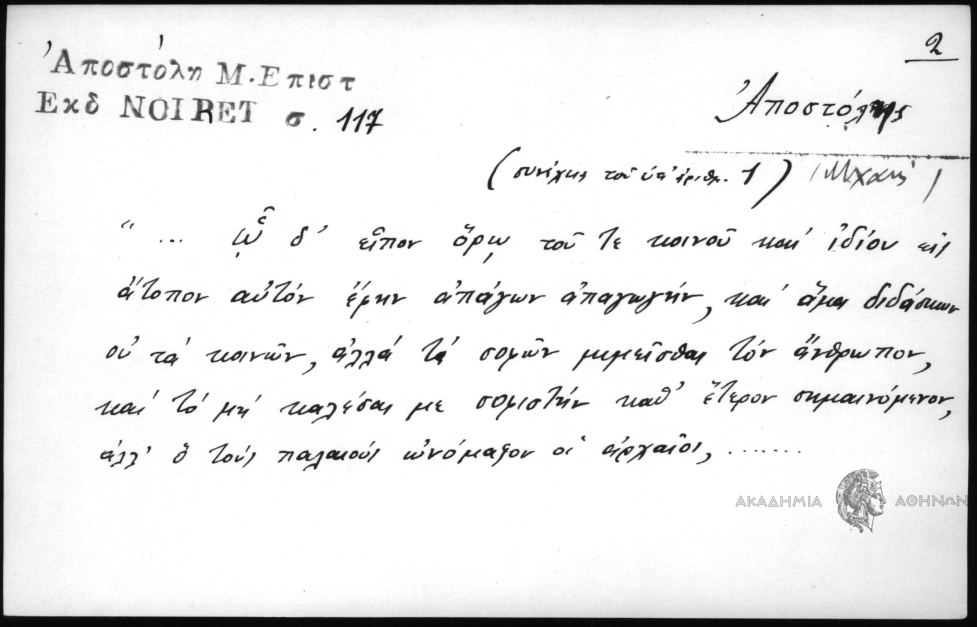 2
Ἀποστόλη Μ. Επιστ
Εκδ NOIRET σ. 117
Ἀποστόλης
(συνέχεια τοῦ ὑπ' ἀριθμ. 1) (Μιχαήλ)
"... ᾧ δ' εἶπον ὅρῳ τοῦ τε κοινοῦ καί ἰδίου εἰς
ἄτοπον αὐτόν ἔφην ἀπάγων ἀπαγωγήν, καί ἅμα διδάσκων
οὐ τά κοινῶν, ἀλλά τά σοφῶν μιμεῖσθαι τόν ἄνθρωπον,
καί τό μή καλέσαι με σοφιστήν καθ' ἕτερον σημαινόμενον,
ἀλλ' ὅ τούς παλαιούς ὠνόμαζον οἱ ἀρχαῖοι, .......
ΑΚΑΔΗΜΙΑ ΑΘΗΝΩΝ